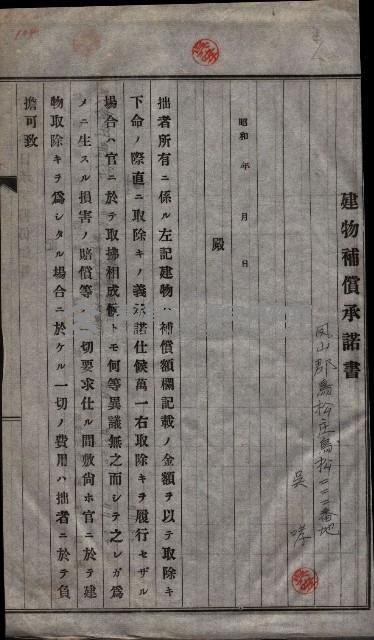 建物補償承諾書
鳳山郡鳥松庄鳥松二二二番地
吳
昭和　年　月　日
殿
拙者所有ニ係ル左記建物ハ補償額欄記載ノ金額ヲ以テ取除キ
下命ノ際直ニ取除キノ義承諾仕候萬一右取除キヲ履行セザル
場合ハ官ニ於テ取拂相成候トモ何等異議無之而シテ之レガ爲
メニ生スル損害ノ賠償等一切要求仕ル間敷尙ホ官ニ於テ建
物取除キヲ爲シタル場合ニ於ケル一切ノ費用ハ拙者ニ於テ負
擔可致